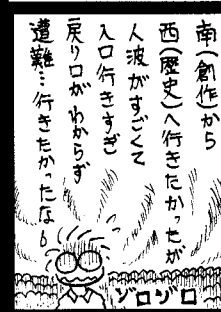 南(創作)から
西(歴史)へ行きたかったが
人波がすごくて
入口行きすぎ
戻り口がわからず
遭難…行きたかったなぁ
ゾロゾロ